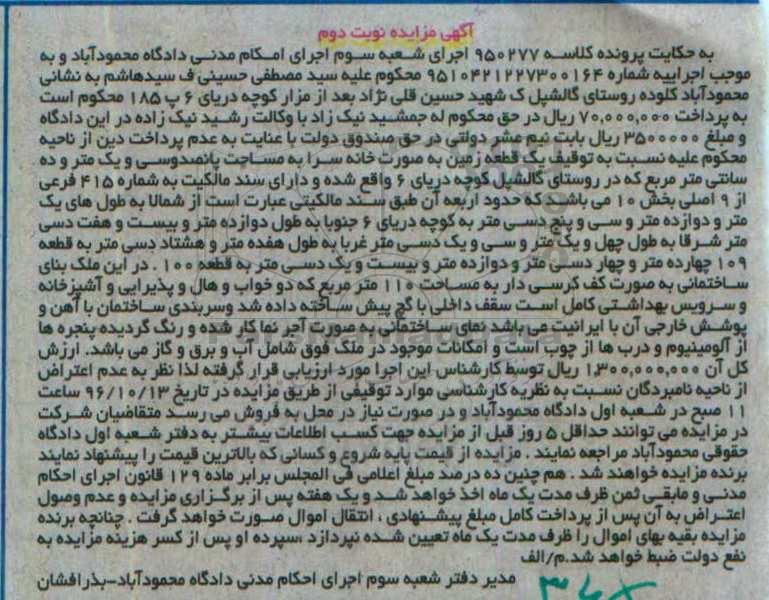 آگهی مزایده نوبت دوم
به حکایت پرونده کلاسه ۹۵۰۲۷۷ اجرای شعبه سوم اجرای امکام مدنی دادگاه محمودآباد و به
موجب اجراییه شماره ۹۵۱۰۴۲۱۲۲۷۳۰۰۱۶۴ محکوم علیه سید مصطفی حسینی ف سیدهاشم به نشانی
محمودآباد کلوده روستای گالشپل ک شهید حسین قلی نژاد بعد از مزار کوچه دریای ۶ پ ۱۸۵ محکوم است
به پرداخت ۷۰,۰۰۰,۰۰۰ ریال در حق محکوم له جمشید نیک زاد با وکالت رشید نیک زاده در این دادگاه
و مبلغ ۳۵۰۰۰۰۰ ریال بابت نیم عشر دولتی در حق صندوق دولت با عنایت به عدم پرداخت دین از ناحیه
محکوم علیه نسبت به توقیف یک قطعه زمین به صورت خانه سرا به مساحت پانصدوسی و یک متر و ده
سانتی متر مربع که در روستای گالشپل کوچه دریای ۶ واقع شده و دارای سند مالکیت به شماره ۴۱۵ فرعی
از ۹ اصلی بخش ۱۰ می باشد که حدود اربعه آن طبق سند مالکیتی عبارت است از شمالا به طول های یک
متر و دوازده متر و سی و پنج دسی متر به کوچه دریای ۶ جنوبا به طول دوازده متر و بیست و هفت دسی
متر شرقا به طول چهل و یک متر و سی و یک دسی متر غربا به طول هفده متر و هشتاد دسی متر به قطعه
۱۰۹ چهارده متر و چهار دسی متر و دوازده متر و بیست و یک دسی متر به قطعه ۱۰۰ . در این ملک بنای
ساختمانی به صورت کف کرسی دار به مساحت ۱۱۰ متر مربع که دو خواب و هال و پذیرایی و آشپزخانه
و سرویس بهداشتی کامل است سقف داخلی با گچ پیش ساخته داده شد وسربندی ساختمان با آهن و
پوشش خارجی آن با ایرانیت می باشد نمای ساختمانی به صورت آجر نما کار شده و رنگ گردیده پنجره ها
از آلومینیوم و درب ها از چوب است و امکانات موجود در ملک فوق شامل آب و برق و گاز می باشد. ارزش
کل آن ۱,۳۰۰,۰۰۰,۰۰۰ ریال توسط کارشناس این اجرا مورد ارزیابی قرار گرفته لذا نظر به عدم اعتراض
از ناحیه نامبردگان نسبت به نظریه کارشناسی موارد توقیفی از طریق مزایده در تاریخ ۹۶/۱۰/۱۳ ساعت
۱۱ صبح در شعبه اول دادگاه محمودآباد و در صورت نیاز در محل به فروش می رسد متقاضیان شرکت
در مزایده می توانند حداقل ۵ روز قبل از مزایده جهت کسب اطلاعات بیشتر به دفتر شعبه اول دادگاه
حقوقی محمودآباد مراجعه نمایند . مزایده از قیمت پایه شروع و کسانی که بالاترین قیمت را پیشنهاد نمایند
برنده مزایده خواهند شد . هم چنین ده درصد مبلغ اعلامی فی المجلس برابر ماده ۱۲۹ قانون اجرای احکام
مدنی و مابقی ثمن ظرف مدت یک ماه اخذ خواهد شد و یک هفته پس از برگزاری مزایده و عدم وصول
اعتراض به آن پس از پرداخت کامل مبلغ پیشنهادی ، انتقال اموال صورت خواهد گرفت . چنانچه برنده
مزایده بقیه بهای اموال را ظرف مدت یک ماه تعیین شده نپردازد ،سپرده او پس از کسر هزینه مزایده به
نفع دولت ضبط خواهد شد.م/الف
مدیر دفتر شعبه سوم اجرای احکام مدنی دادگاه محمودآباد-بذرافشان